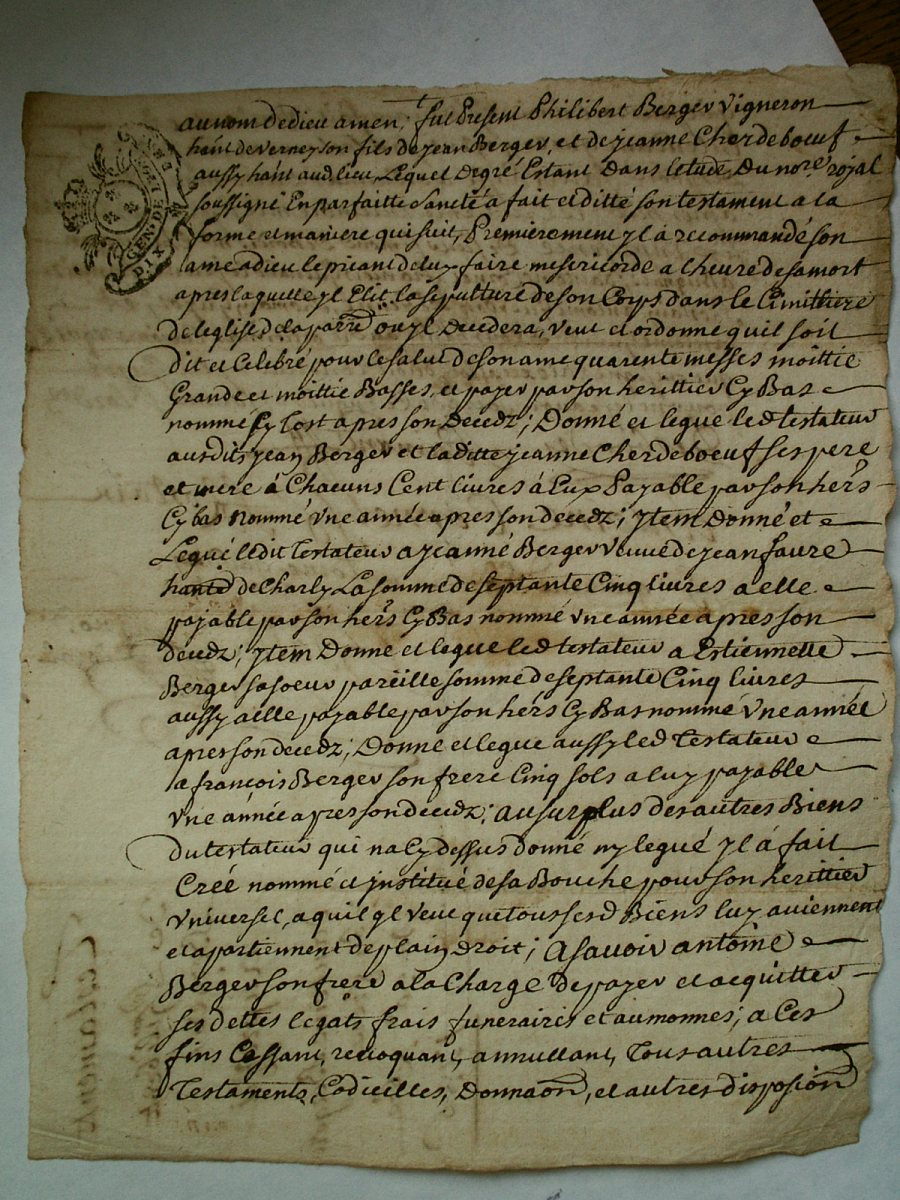 au nom de dieu amen, fut present Philibert Berger vigneron
hant de verney son fils de jean Berger, et de jeanne Cherdeboeuf
aussy hant aud lieu, Lequel de gré Estant Dans letude Du nore royal
soussigné En parfaitte Santé a fait et ditté son testament a la
forme et maniere qui suit, Premierement yl à recommandé son
ame a dieu le priant de luy faire misericorde a lheure de sa mort
apres laquelle yl Elit la sepulture de son Corps dans le Cimittiere
de leglise de la parre ou yl Decedera, veut et ordonne quil soit
dit et Celebré pour le salut de son ame quarente messes moittie
Grande et moittie Basses, et payer par son herittier Cy Bas
nommé sy tost apres son Decedz; Donné et legue led testateur
ausdits jean Berger et laditte jeanne Cherdeboeuf ses pere
et mere à Chacuns Cent livres à Eux Payable par son hers
Cy bas Nommé vne année apres son decedz; Ytem Donné et
Legué ledit Testateur a jeanne Berger veuve de jean faure
hante de Charly La somme de septante Cinq livres a elle
payable par son hers Cy Bas nommé vne année apres son
decedz; Ytem Donne et legue led testateur a Estiennette
Berger sa soeur pareille somme de septante Cinq livres
aussy a elle payable par son hers Cy Bas nommé vne année
apres son decedz; Donne et legue aussy led Testateur
a francois Berger son frere Cinq sols a luy payable
vne année apres son decedz; au surplus des autres Biens
du testateur qui na Cy dessus donné ny legué yl à fait
Creé nommé et jnstitué de sa Bouche pour son herittier
vniversel, a quil yl veut que tous sesd Biens luy aviennent
et apartiennent de plain droit; Asavoir antoine
Berger son frere a la Charge de payer et acquitter
ses dettes legats frais funeraires et aumonnes; a Ces
fins Cassant, revoquant, annullant, Tous autres
Testaments, Codicilles, Donnaon, et autres disposion
GEN DE
DIX